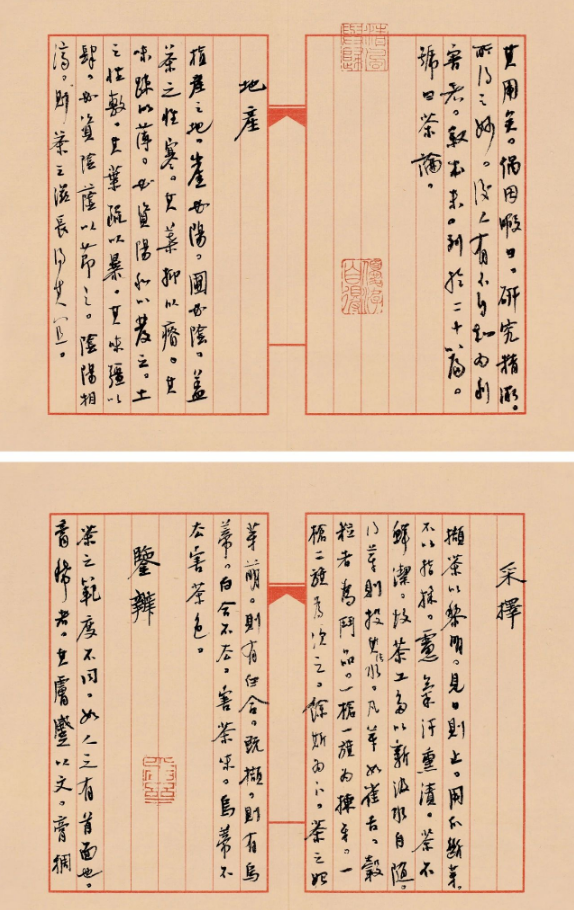 其用矣。偶因暇日。研究精微。
所得之妙。後人有不自知为利
害者。叙本末。列於二十篇。
號曰茶論。
地產
植產之地。崖必陽。圃必陰。蓋
茶之性寒。其葉抑以瘠。其
味疎以薄。必資陽和以發之。土
之性敷。其葉疏以暴。其味彊以
肆。必資陰蔭以節之。陰陽相
濟。則茶之滋長得其宜。
采擇
擷茶以黎明。見日則止。用爪斷芽。
不以指揉。慮氣汗熏漬。茶不
鮮潔。故茶工多以新汲水自隨。
得芽則投其水。凡芽如雀舌。穀
粒者為鬥品。一槍一旗为揀芽。一
槍二旗為次之。餘斯为下。茶之始
芽萌。則有白合。既擷。則有烏
蒂。白合不去。害茶味。烏蒂不
去害茶色。
鑒辨
茶之範度不同。如人之有首面也。
膏稀者。其膚蹙以文。膏稠